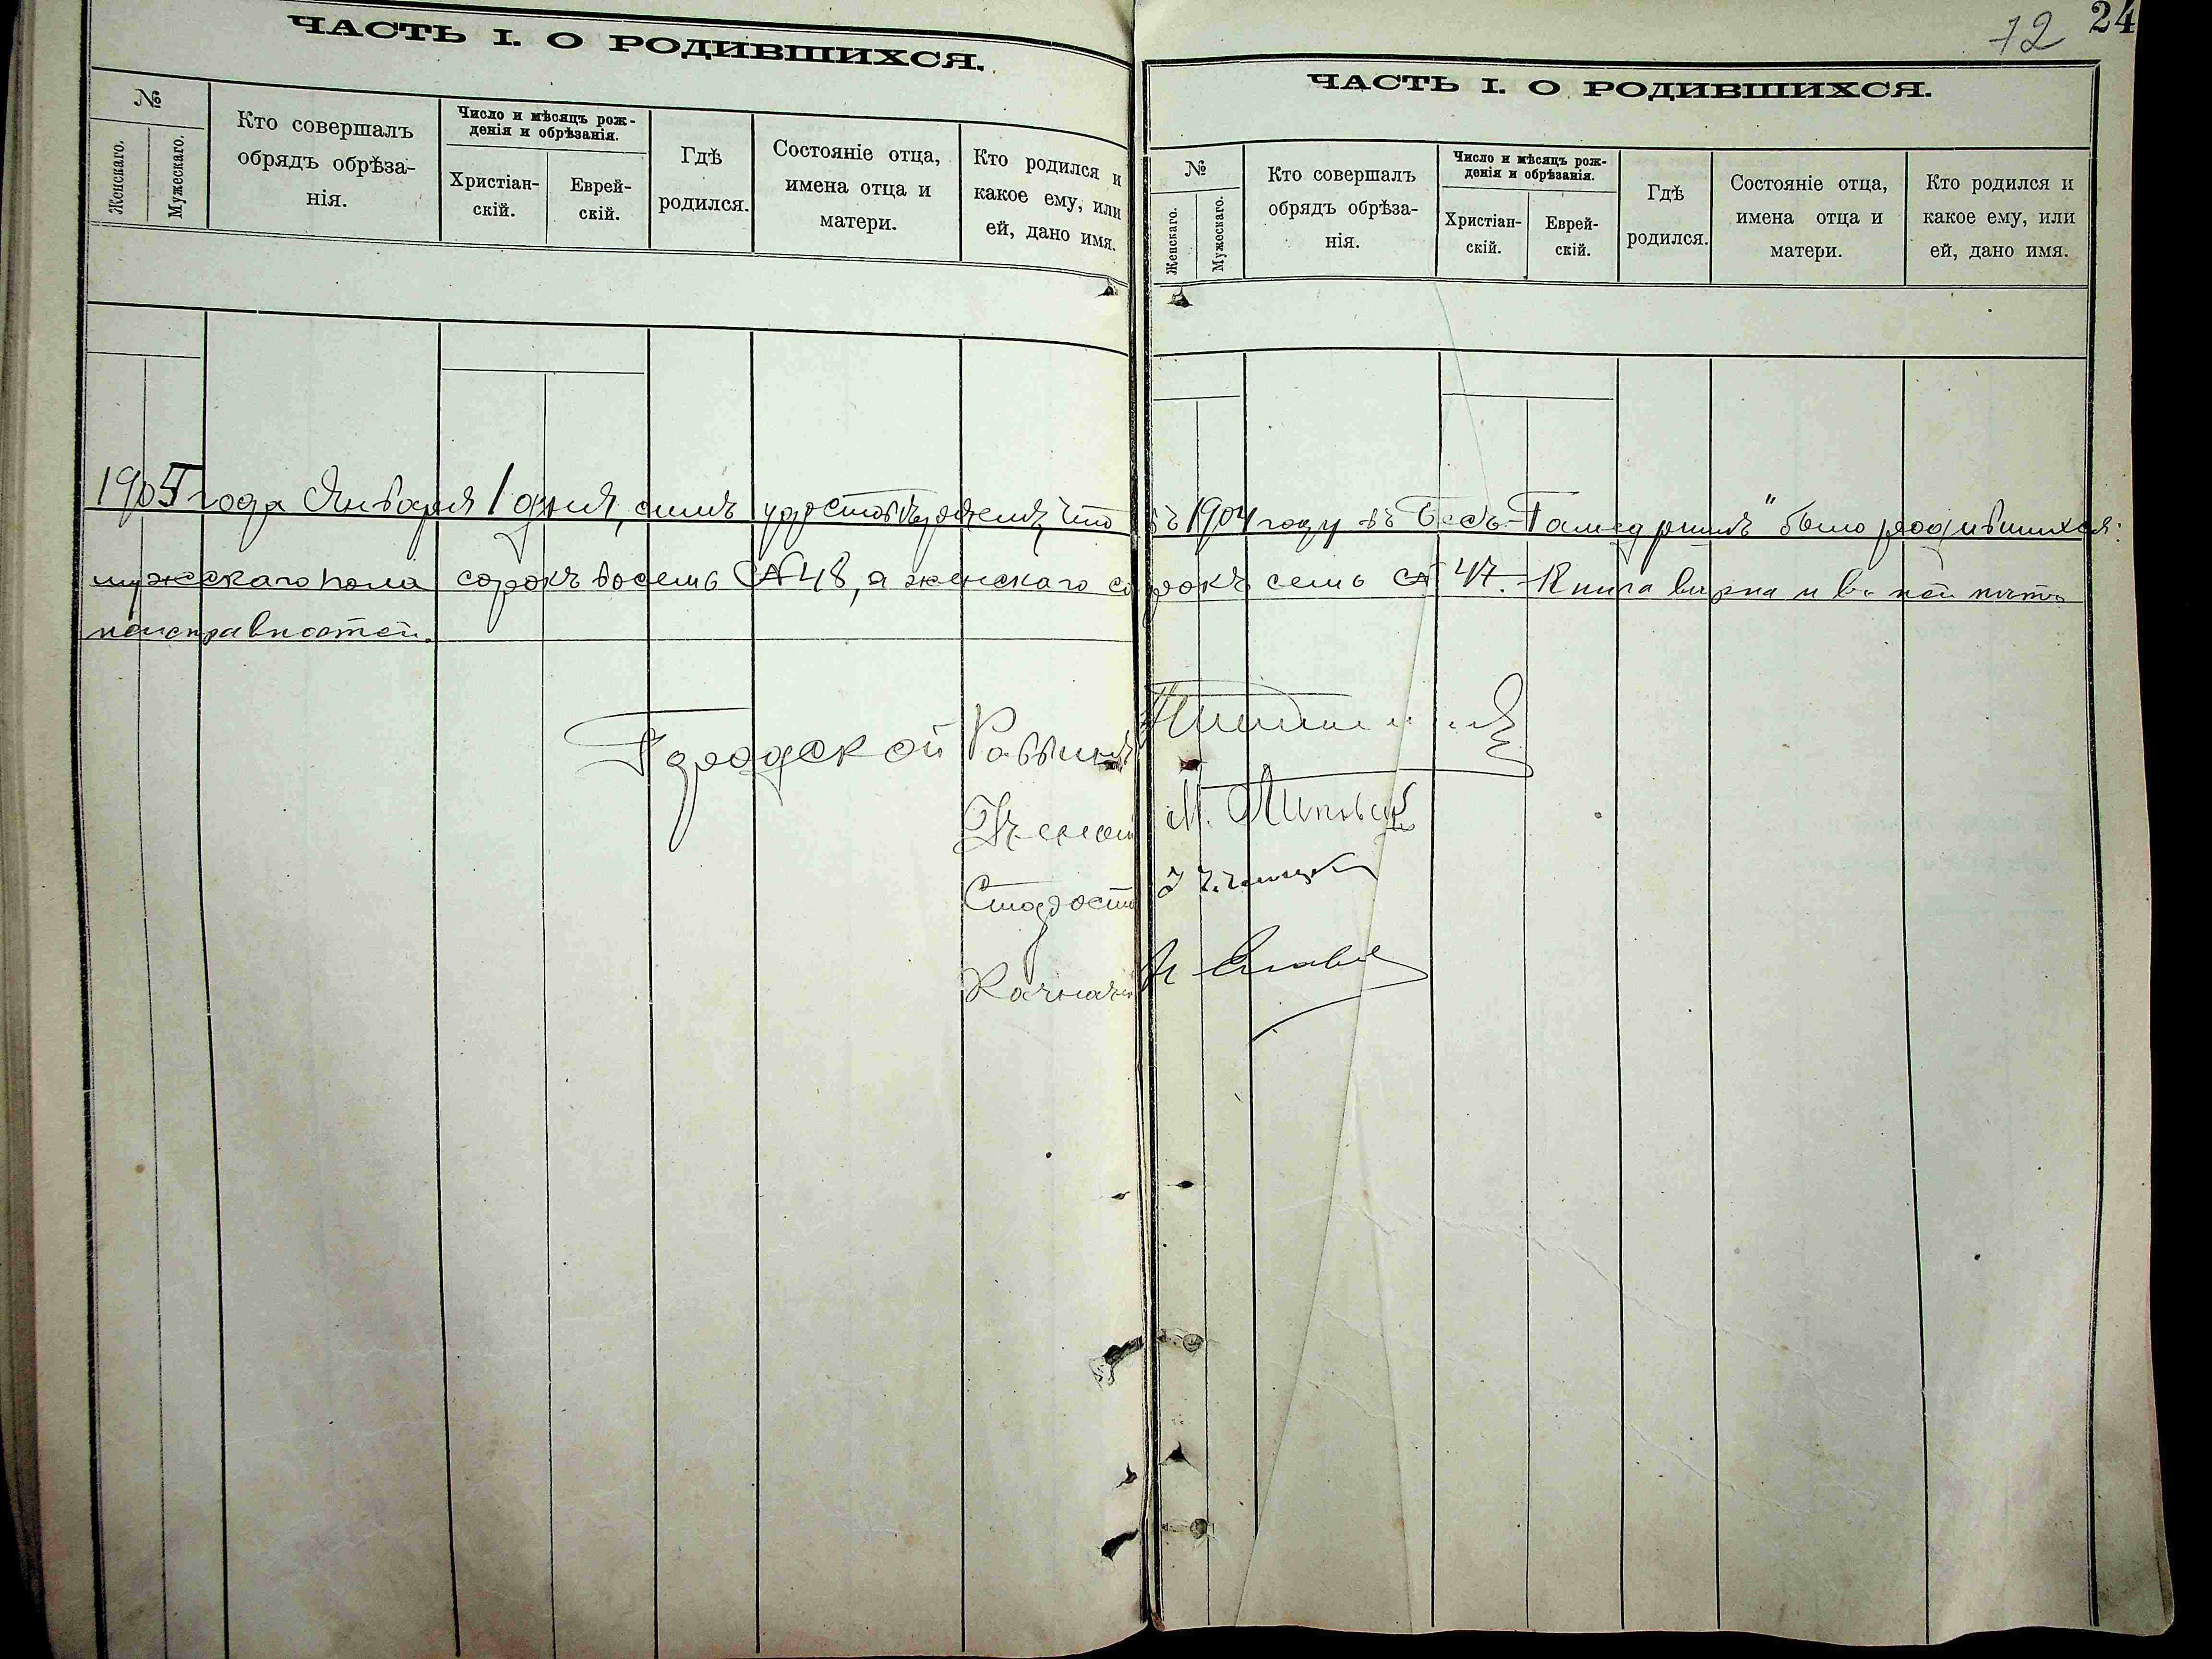 ЧАСТЬ I. О РОДИВШИХСЯ.
№
Женскаго.
Мужескаго.
Кто совершалъ
обрядъ обрѣза-
нія.
Число и мѣсяцъ рож-
денія и обрѣзанія.
Христіан-
скій.
Еврей-
скій.
Гдѣ
родился.
Состояніе отца,
имена отца и
матери.
Кто родился и
какое ему, или
ей, дано имя.
72 24
ЧАСТЬ I. О РОДИВШИХСЯ.
№
Женскаго.
Мужескаго.
Кто совершалъ
обрядъ обрѣза-
нія.
Число и мѣсяцъ рож-
денія и обрѣзанія.
Христіан-
скій.
Еврей-
скій.
Гдѣ
родился.
Состояніе отца,
имена отца и
матери.
Кто родился и
какое ему, или
ей, дано имя.
1905 года Января 1 дня, симъ удостовѣряемъ, что въ 1904 году въ Бесъ-Гамедришъ" было родившихся:
мужскаго пола сорокъ восемь № 48, а женскаго сорокъ семь № 47. Книга вѣрна и въ ней нѣтъ
неисправностей.
Городской Раввинъ
Ученый М.
Староста
Казначей